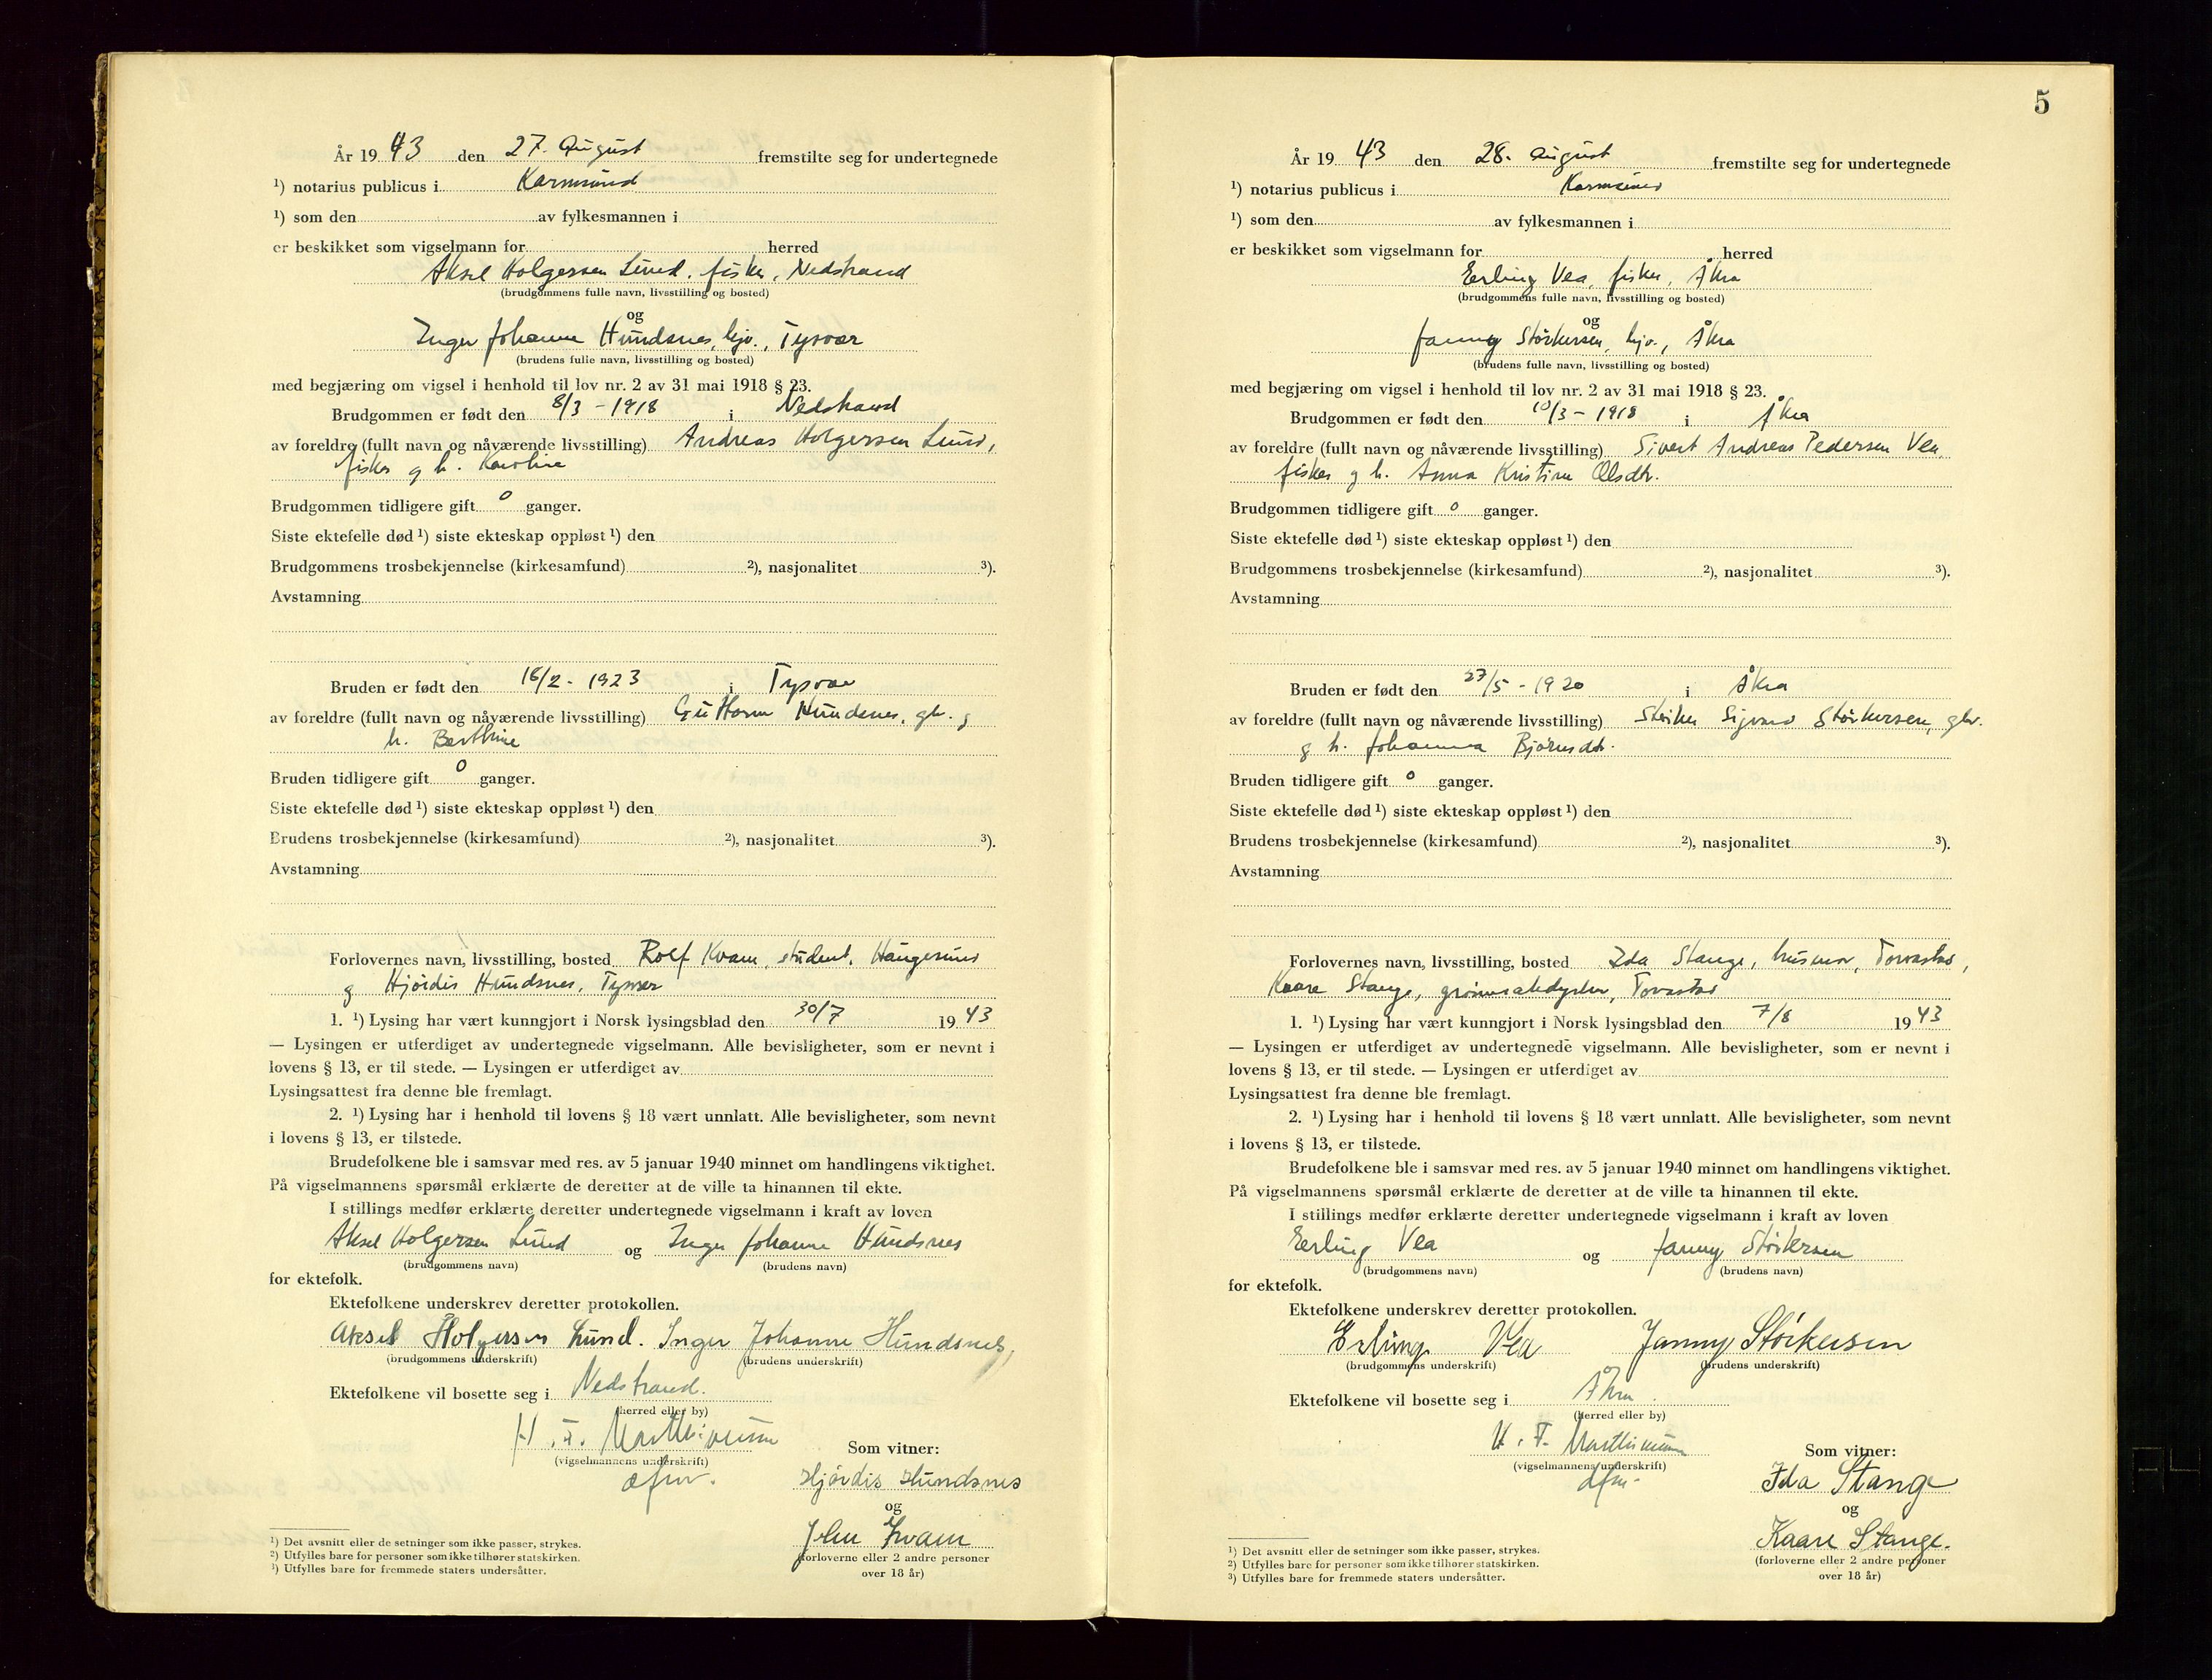 År 19 43 den 27. August fremstilte seg for undertegnede
¹) notarius publicus i Karmsund
¹) som den av fylkesmannen i
er beskikket som vigselmann for herred
Aksel Holgersen Lund, fisker, Nedstrand
(brudgommens fulle navn, livsstilling og bosted)
og
Inger Johanne Hundsnes, hjv., Tysvær
(brudens fulle navn, livsstilling og bosted)
med begjæring om vigsel i henhold til lov nr. 2 av 31 mai 1918 § 23.
Brudgommen er født den 8/3 - 1918 i Nedstrand
av foreldre (fullt navn og nåværende livsstilling) Andreas Holgersen Lund,
fisker g h. Karoline
Brudgommen tidligere gift 0 ganger.
Siste ektefelle død ¹) siste ekteskap oppløst ¹) den
Brudgommens trosbekjennelse (kirkesamfund) ²), nasjonalitet ³).
Avstamning
Bruden er født den 18/2 - 1923 i Tysvær
av foreldre (fullt navn og nåværende livsstilling) Guttorm Hundsnes, gbr. g
h. Berthine
Bruden tidligere gift 0 ganger.
Siste ektefelle død ¹) siste ekteskap oppløst ¹) den
Brudens trosbekjennelse (kirkesamfund) ²), nasjonalitet ³).
Avstamning
Forlovernes navn, livsstilling, bosted Rolf Kvam, student, Haugesund
g Hjørdis Hundsnes, Tysvær
1. ¹) Lysing har vært kunngjort i Norsk lysingsblad den 30/7 19 43
— Lysingen er utferdiget av undertegnede vigselmann. Alle bevisligheter, som er nevnt i
lovens § 13, er til stede. — Lysingen er utferdiget av
Lysingsattest fra denne ble fremlagt.
2. ¹) Lysing har i henhold til lovens § 18 vært unnlatt. Alle bevisligheter, som nevnt
i lovens § 13, er tilstede.
Brudefolkene ble i samsvar med res. av 5 januar 1940 minnet om handlingens viktighet.
På vigselmannens spørsmål erklærte de deretter at de ville ta hinannen til ekte.
I stillings medfør erklærte deretter undertegnede vigselmann i kraft av loven
Aksel Holgersen Lund og Inger Johanne Hundsnes
(brudgommens navn) (brudens navn)
for ektefolk.
Ektefolkene underskrev deretter protokollen.
Aksel Holgersen Lund. Inger Johanne Hundsnes,
(brudgommens underskrift) (brudens underskrift)
Ektefolkene vil bosette seg i Nedstrand.
(herred eller by)
H. F.
(vigselmannens underskrift)
Som vitner:
Hjørdis Hundsnes
og
John Kvam
(forloverne eller 2 andre personer
over 18 år)
¹) Det avsnitt eller de setninger som ikke passer, strykes.
²) Utfylles bare for personer som ikke tilhører statskirken.
³) Utfylles bare for fremmede staters undersåtter.
5
År 19 43 den 28. August fremstilte seg for undertegnede
¹) notarius publicus i Karmsund
¹) som den av fylkesmannen i
er beskikket som vigselmann for herred
Erling Vea, fisker, Åkra
(brudgommens fulle navn, livsstilling og bosted)
og
Janny Störkersen, hjv., Åkra
(brudens fulle navn, livsstilling og bosted)
med begjæring om vigsel i henhold til lov nr. 2 av 31 mai 1918 § 23.
Brudgommen er født den 10/3 - 1918 i Åkra
av foreldre (fullt navn og nåværende livsstilling) Sivert Andreas Pedersen Vea,
fisker g h. Anna Kristine Olsdtr.
Brudgommen tidligere gift 0 ganger.
Siste ektefelle død ¹) siste ekteskap oppløst ¹) den
Brudgommens trosbekjennelse (kirkesamfund) ²), nasjonalitet ³).
Avstamning
Bruden er født den 27/5 - 1920 i Åkra
av foreldre (fullt navn og nåværende livsstilling) Störker Sigvard Störkersen, gbr.
g h. Johanna Bjørnsdtr.
Bruden tidligere gift 0 ganger.
Siste ektefelle død ¹) siste ekteskap oppløst ¹) den
Brudens trosbekjennelse (kirkesamfund) ²), nasjonalitet ³).
Avstamning
Forlovernes navn, livsstilling, bosted Ida Stange, husmor, Torvastad,
Kaare Stange, grønsakdyrker, Torvastad
1. ¹) Lysing har vært kunngjort i Norsk lysingsblad den 7/8 19 43
— Lysingen er utferdiget av undertegnede vigselmann. Alle bevisligheter, som er nevnt i
lovens § 13, er til stede. — Lysingen er utferdiget av
Lysingsattest fra denne ble fremlagt.
2. ¹) Lysing har i henhold til lovens § 18 vært unnlatt. Alle bevisligheter, som nevnt
i lovens § 13, er tilstede.
Brudefolkene ble i samsvar med res. av 5 januar 1940 minnet om handlingens viktighet.
På vigselmannens spørsmål erklærte de deretter at de ville ta hinannen til ekte.
I stillings medfør erklærte deretter undertegnede vigselmann i kraft av loven
Erling Vea og Janny Störkersen
(brudgommens navn) (brudens navn)
for ektefolk.
Ektefolkene underskrev deretter protokollen.
Erling Vea Janny Störkersen
(brudgommens underskrift) (brudens underskrift)
Ektefolkene vil bosette seg i Åkra.
(herred eller by)
H. F.
(vigselmannens underskrift)
Som vitner:
Ida Stange
og
Kaare Stange.
(forloverne eller 2 andre personer
over 18 år)
¹) Det avsnitt eller de setninger som ikke passer, strykes.
²) Utfylles bare for personer som ikke tilhører statskirken.
³) Utfylles bare for fremmede staters undersåtter.